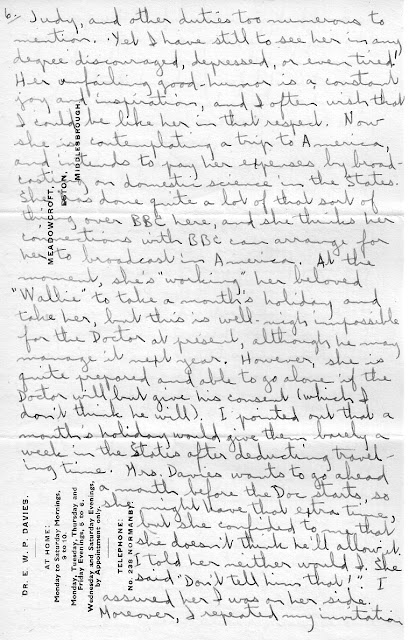 6. Judy, and other duties too numerous to
mention. Yet I have still to see her in any
degree discouraged, depressed, or even tired.
Her unfailing good-humor is a constant
joy and inspiration, and I often wish that
I could be like her in that respect. Now
she is contemplating a trip to America,
and intends to pay her expenses by broad-
casting on domestic science in the States.
She has done quite a lot of that sort of
thing over BBC here, and she thinks her
connections with BBC can arrange for
her to broadcast in America. At the
moment, she's "working" her beloved
"Wallie" to take a month's holiday and
take her, but this is well-nigh impossible
for the Doctor at present, although he may
manage it next year. However, she is
quite prepared and able to go alone if the
Doctor will but give his consent (which I
don't think he will). I pointed out that a
month's holiday would give them barely a
week in the States after deducting travel-
ing time. Mrs. Davies wants to go ahead
a month before the Doc starts, so
she might have that extra time,
but she confided to me that
she doesn't think he'll allow it.
I told her neither would I. She
said "Don't tell him that!". I
assured her I was on her side.
Moreover, I repeated my invitation
MEADOWCROFT,
ESTON,
MIDDLESBROUGH.
DR. E. W. P. DAVIES.
AT HOME:
Monday to Saturday Mornings,
9 to 10.
Monday, Tuesday, Thursday and
Friday Evenings, 5 to 6.
Wednesday and Saturday Evenings,
by Appointment only.
TELEPHONE:
No. 238 NORMANBY.